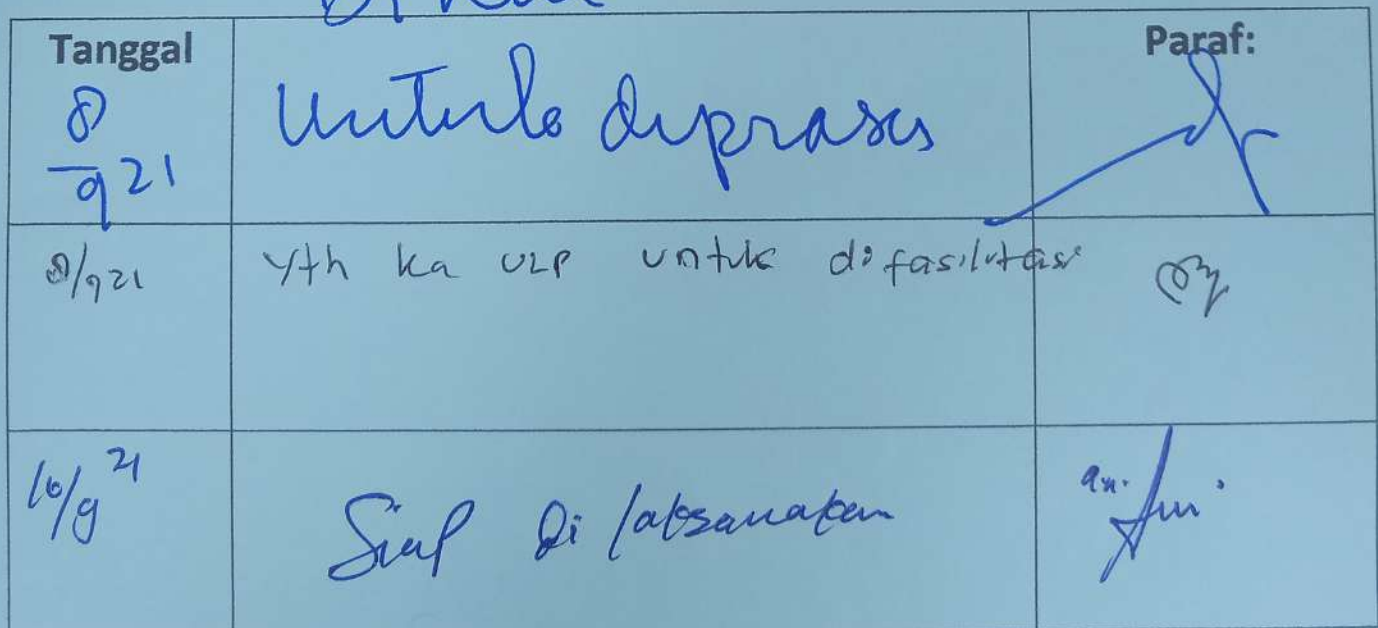 Tanggal
Paraf:
8/9 21
Untuk diproses
8/9 21
Yth ka ULP untuk difasilitasi
10/9 21
Siap dilaksanakan
an.